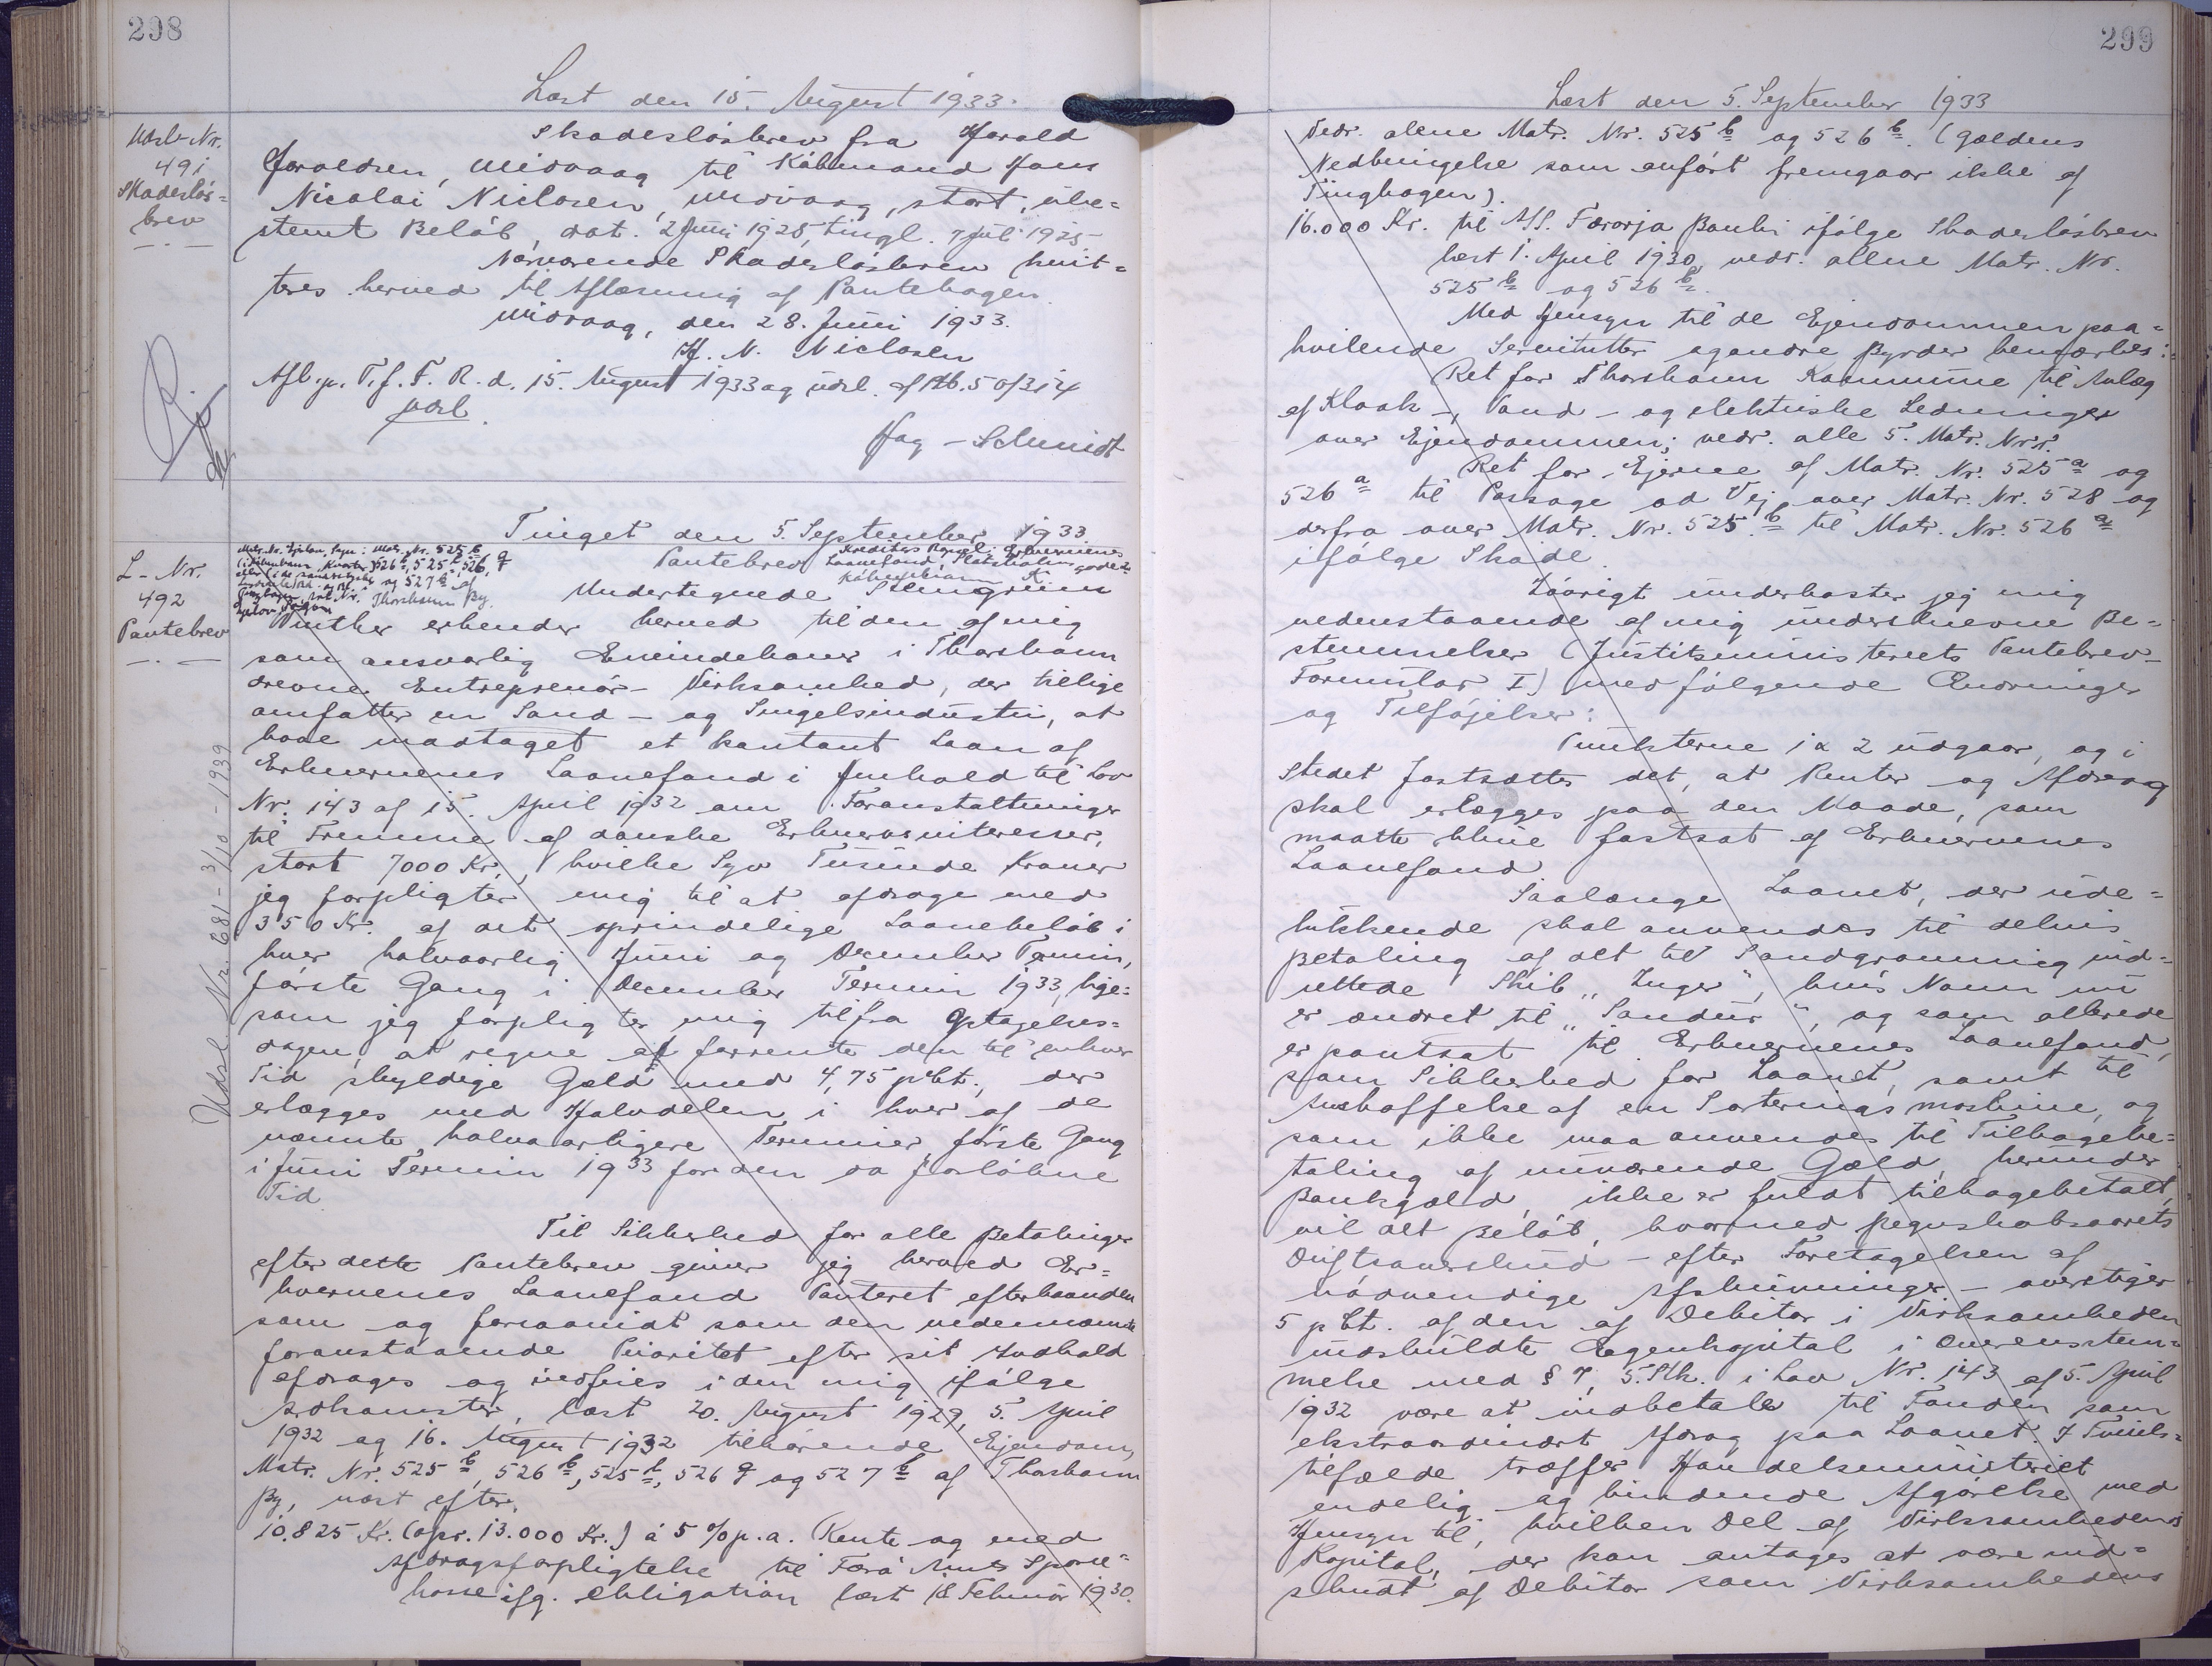 298
Læst den 15. August 1933.
Udsl-Nr.
491
Skadeslös=
brev
Skadeslösbrev fra Harald
Joraldsen, Midvaag til Köbmand Hans
Nicolai Niclasen, Midvaag, stort, ube=
stemt Belöb, dat. 2 Juni 1925, tingl. 7 Juli 1925
Nærværende Skadeslösbrev kvit=
teres herved til Aflæsning af Pantebogen.
Midvaag, den 28. Juni 1933.
H. N. Niclasen
Afl. p. T. f. F. R. d. 15. August 1933 og udsl. af Pb. 5 of 314
udsl.
Jag - Schmidt
Tinget den 5. September 1933.
L-Nr.
492
Pantebrev
Matr. Nr. Ejerlav, Sogn: Matr. Nr. 525 b
(i København Kvarter) 526 b, 525 f, 526 q
eller (i de sønderjydske og 527 b af
Thorshavn By.
Pantebrev
Kreditors Bopæl: Erhvervenes
Laanefond, Slotsholmsgade
København K.
Undertegnede Stengrim
Vinther erkender herved til den af mig
som ansvarlig Eneindehaver i Thorshavn
drevne Entreprenör- Virksomhed, der tillige
omfatter en Sand- og Singelsindustri, at
have modtaget et kontant Laan af
Erhvervenes Laanefond i Henhold til Lov
Nr. 143 af 15. April 1932 om Foranstaltninger
til Fremme af danske Erhvervsinteresser,
stort 7000 Kr., hvilke Syv Tusinde Kroner
jeg forpligter mig til at afdrage med
350 Kr. af det oprindelige Laanebelöb i
hver halvaarlig Juni og December Termin,
förste Gang i December Termin 1933, lige=
som jeg forpligter mig til fra Optagelses=
dagen at regne at forrente den til enhver
Tid skyldige Gæld med 4,75 pCt., der
erlægges med Halvdelen i hver af de
nævnte halvaarligere Terminer förste Gang
i Juni Termin 1933 for den da forløbne
Tid
Udsl Nr. 681 - 3/10 - 1939
Til Sikkerhed for alle Betalinger
efter dette Pantebrev giver jeg herved Er=
hvervenes Laanefond Panteret efterhaanden
som og forsaavidt som den nedennævnte
foranstaaende Prioritet efter sit Indhold
afdrages og indfries i den mig ifölge
Skøder, læst 20. August 1929, 5. April
1932 og 16. August 1932 tilhörende Ejendom,
Matr. Nr. 525 b, 526 b, 525 f, 526 q og 527 b af Thorshavn
By, næst efter.
10.825 Kr. (opr. 13.000 Kr.) à 5 % p.a. Rente og med
Afdragsforpligtelse til Færö Amts Spare=
kasse ifg. Obligation læst 18 Februar 1930.
299
Læst den 5. September 1933
vedr. alene Matr. Nr. 525 b og 526 b. (Gældens
Nedbringelse som anfört fremgaar ikke af
Tingbogen).
16.000 Kr. til A/S. Færorja Banki ifölge Skadeslösbrev
læst 1. April 1930, vedr. allene Matr. Nr.
525 b og 526 b.
Med Hensyn til de Ejendommen paa=
hvilende Servitutter og andre Byrder bemærkes:
Ret for Thorshavn Kommune til Anlæg
af Kloak-, Vand- og elektriske Ledninger
over Ejendommen; vedr. alle 5. Matr. Nr.r.
Ret for Ejerne af Matr. Nr. 525 a og
526 a til Passage ad Vej over Matr. Nr. 528 og
derfra over Matr. Nr. 525 b til Matr. Nr. 526 a
ifölge Skøde.
Iövrigt underkaster jeg mig
nedenstaaende af mig underskrevne Be=
stemmelser (Justitsministeriets Pantebrev-
Formular I) med fölgende Ændringer
og Tilföjelser:
Punkterne 1 & 2 udgaar, og i
Stedet fastsættes det, at Renter og Afdrag
skal erlægges paa den Maade, som
maatte blive fastsat af Erhvervenes
Laanefond
Saalænge Laanet, der ude=
lukkende skal anvendes til delvis
Betaling af det til Sandgravning ind=
rettede Skib "Inger", hvis Navn nu
er ændret til "Sandur", og som allerede
er pantsat til Erhvervenes Laanefond,
som Sikkerhed for Laanet, samt til
Anskaffelse af en Sorterings maskine, og
som ikke maa anvendes til Tilbagebe=
taling af nuværende Gæld, herunder
Bankgæld, ikke er fuldt tilbagebetalt,
vil det Belöb, hvormed Regnskabsaarets
Driftsoverskud - efter Foretagelsen af
nödvendige Afskrivninger - overstiger
5 pCt. af den af Debitor i Virksomheden
indskudte Egenkapital i Overensstem=
melse med § 7, 5. Stk. i Lov Nr. 143 af 5. April
1932 være at indbetale til Fonden som
ekstraordinært Afdrag paa Laanet. I Tvivls=
tilfælde træffer Handelsministeriet
endelig og bindende Afgörelse med
Hensyn til, hvilken Del af Virksomhedens
Kapital, der kan antages at være ind=
skudt af Debitor som Virksomhedens